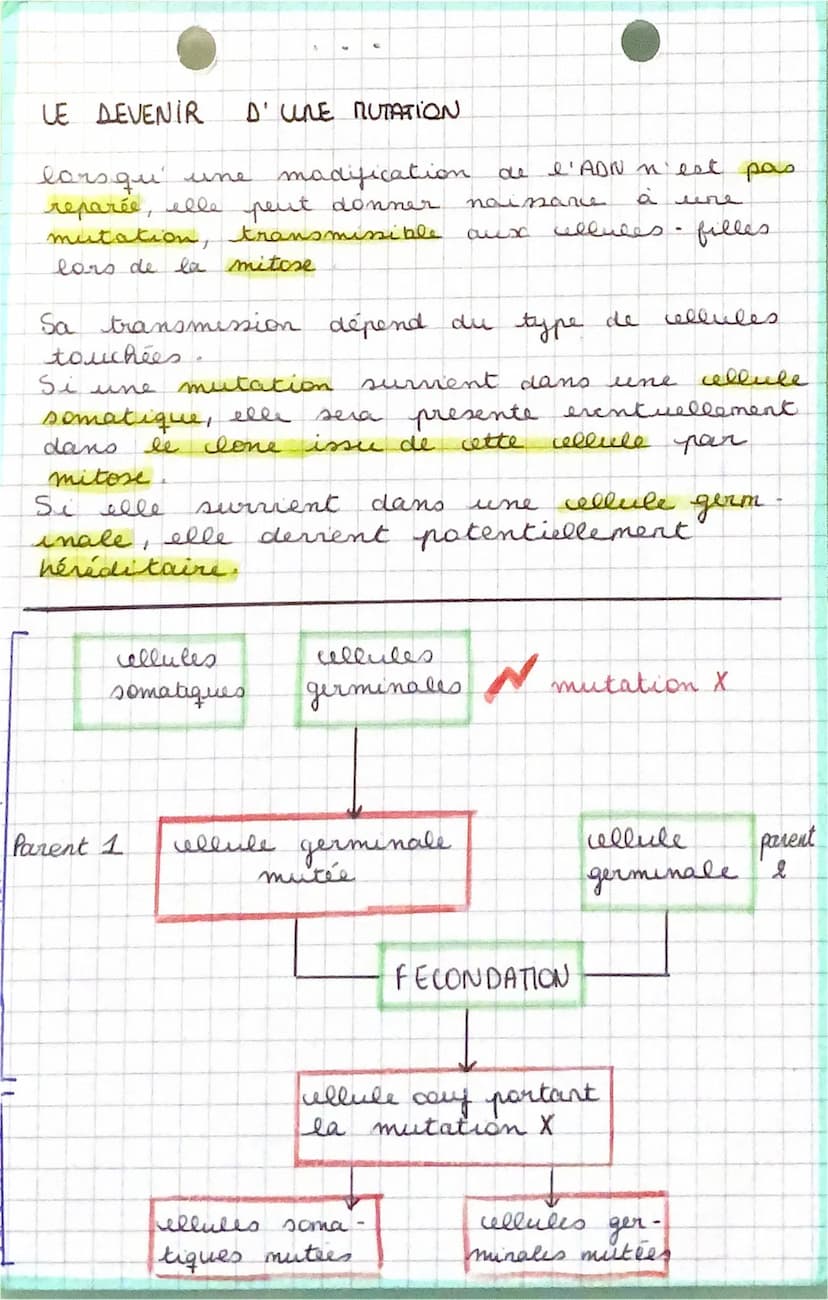 LE DEVENIR D'UNE MUTATION
lorsqu'une modification de l'ADN n'est pas
reparée, elle peut donner naissance à une
mutation, transmissible aux cellules-filles
lors de la mitose
Sa transmission dépend du type de cellules
touchées.
Si une mutation survient dans une cellule
somatique, elle sera presente eventuellement
dans le clone issu de cette cellule par
mitose.
Si elle survient dans une cellule germ-
inale, elle devient potentiellement
héréditaire.
cellules
somatiques
cellules
germinales
mutation X
Parent 1
cellule germinale
mutée
cellule
germinale
parent
2
FECONDATION
cellule oeuf portant
la mutation X
cellules soma-
tiques mutées
cellules ger-
minales mutées